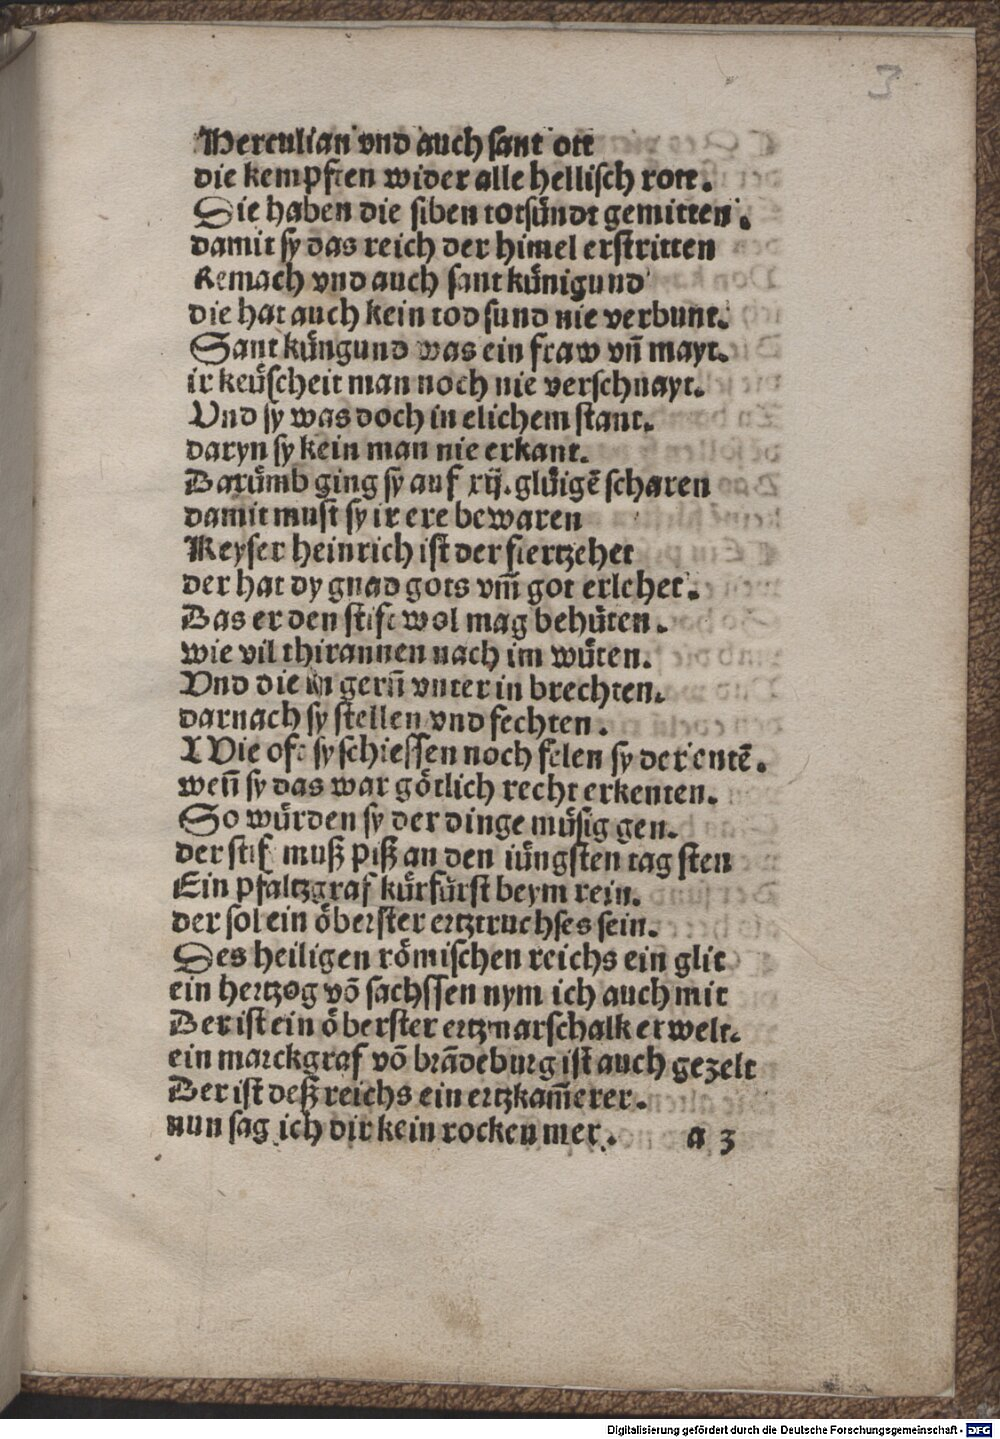 3
Herculian vnd auch sant ott
die kempften wider alle hellisch rott.
Sie haben die siben totsündt gemitten.
damit sy das reich der himel erstritten
Kemach vnd auch sant künigund
die hat auch kein tod sund nie verbunt.
Sant küngund was ein fraw vn̄ mayt.
ir keüscheit man noch nie verschnayt.
Vnd sy was doch in elichem stant.
daryn sy kein man nie erkant.
Darümb ging sy auf xij. glüigē scharen
damit must sy ir ere bewaren
Keyser heinrich ist der fiertzehet
der hat dy gnad gots vm̄ got erlehet.
Das er den stift wol mag behüten.
wie vil thirannen nach im wüten.
Vnd die in gern̄ vnter in brechten.
darnach sy stellen vnd fechten.
Wie oft sy schiessen noch felen sy der entē.
wen̄ sy das war götlich recht erkenten.
So würden sy der dinge müsig gen.
der stift muß piß an den iüngsten tag sten
Ein pfaltzgraf kürfürst beym rein.
der sol ein öberster ertztruchses sein.
Des heiligen römischen reichs ein glit
ein hertzog vō sachssen nym ich auch mit
Der ist ein öberster ertzmarschalk erwelt.
ein marckgraf vō brādeburg ist auch gezelt
Der ist deß reichs ein ertzkam̄erer.
nun sag ich dir kein rocken mer. a 3
Digitalisierung gefördert durch die Deutsche Forschungsgemeinschaft - DFG